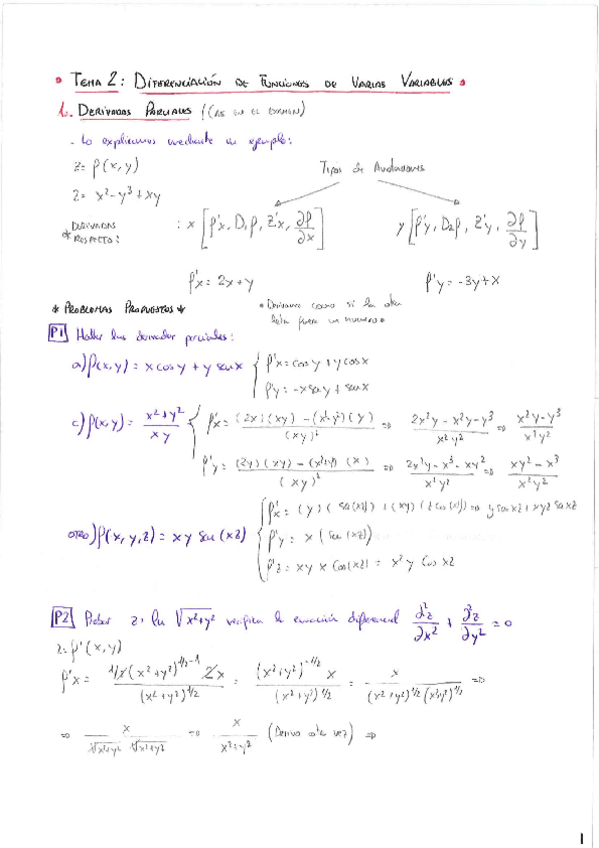 • TEMA 2: DIFERENCIACIÓN DE FUNCIONES DE VARIAS VARIABLES •
1. DERIVADAS PARCIALES
- Lo explicamos mediante un ejemplo:
z = f(x, y)
Tipos de Anotaciones
z = x² - y³ + xy
* DERIVADAS RESPECTO: : x [f'x, D₁f, Z'x, ∂f/∂x] y [f'y, D₂f, Z'y, ∂f/∂y]
f'x = 2x + y f'y = -3y + x
* PROBLEMAS PROPUESTOS *
• Derivamos como si la otra letra fuera un numero •
P1 Hallar las derivadas parciales:
a) f(x, y) = x cos y + y sen x { f'x = cos y + y cos x
f'y = -x sen y + sen x
c) f(x, y) = x² + y² / xy { f'x = (2x)(xy) - (x² + y²)(y) / (xy)² => 2x²y - x²y - y³ / x²y² => x²y - y³ / x²y²
f'y = (2y)(xy) - (x² + y²)(x) / (xy)² => 2x²y - x³ - xy² / x²y² => xy² - x³ / x²y²
OTRO) f(x, y, z) = xy sen (xz) { f'x = (y)(sen(xz)) + (xy)(z cos(xz)) => y sen xz + xyz cos xz
f'y = x (sen (xz))
f'z = xy x cos(xz) = x² y cos xz
P2 Probar z = ln √x² + y² verifica la ecuación diferencial ∂²z/∂x² + ∂²z/∂y² = 0
z = f'(x, y)
f'x = 1/2 (x² + y²)^1/2 - 1 2x / (x² + y²)^1/2 = (x² + y²)^-1/2 x / (x² + y²)^1/2 = x / (x² + y²)^1/2 (x² + y²)^1/2 =>
=> x / √x² + y² √x² + y² => x / x² + y² (Derivo otra vez) =>
1